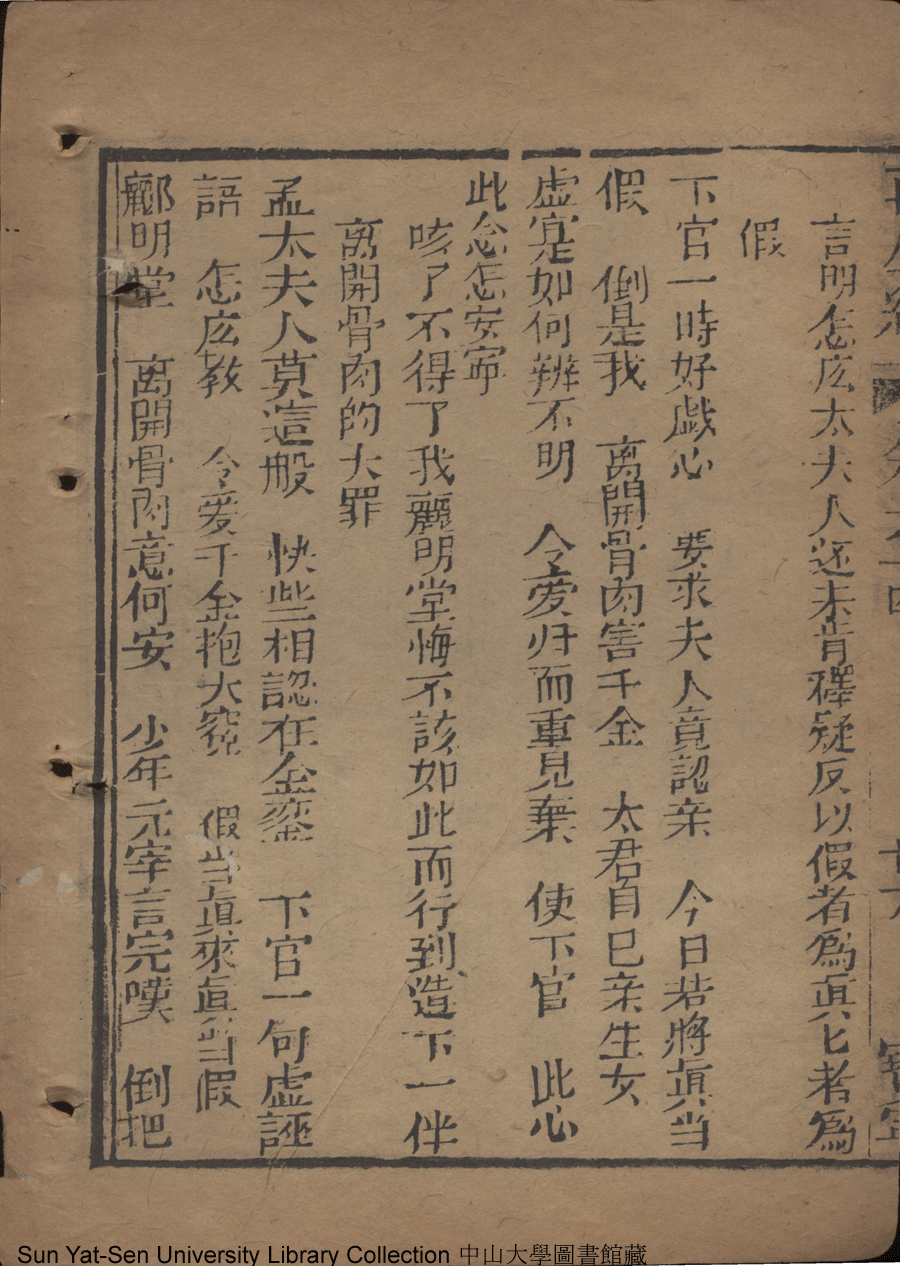 言明怎庅太夫人还未肯釋疑反以假者爲眞匕者爲
假
下官一時好戯心　要求夫人竟認亲　今日若將眞当
假　倒是我　离開骨肉害千金　太君自已亲生女
虚寔如何辨不明　令爱归而重見棄　使下官　此心
此念怎安寧
咳了不得了我酈明堂悔不該如此而行到造下一件
离開骨肉的大罪
孟太夫人莫這般　快些相認在金鑾　下官一句虚誣
語　怎庅教　令爱千金抱大寃　假当眞來眞当假
酈明堂　离開骨肉意何安　少年元宰言完嘆　倒把
Sun Yat-Sen University Library Collection 中山大學圖書館藏